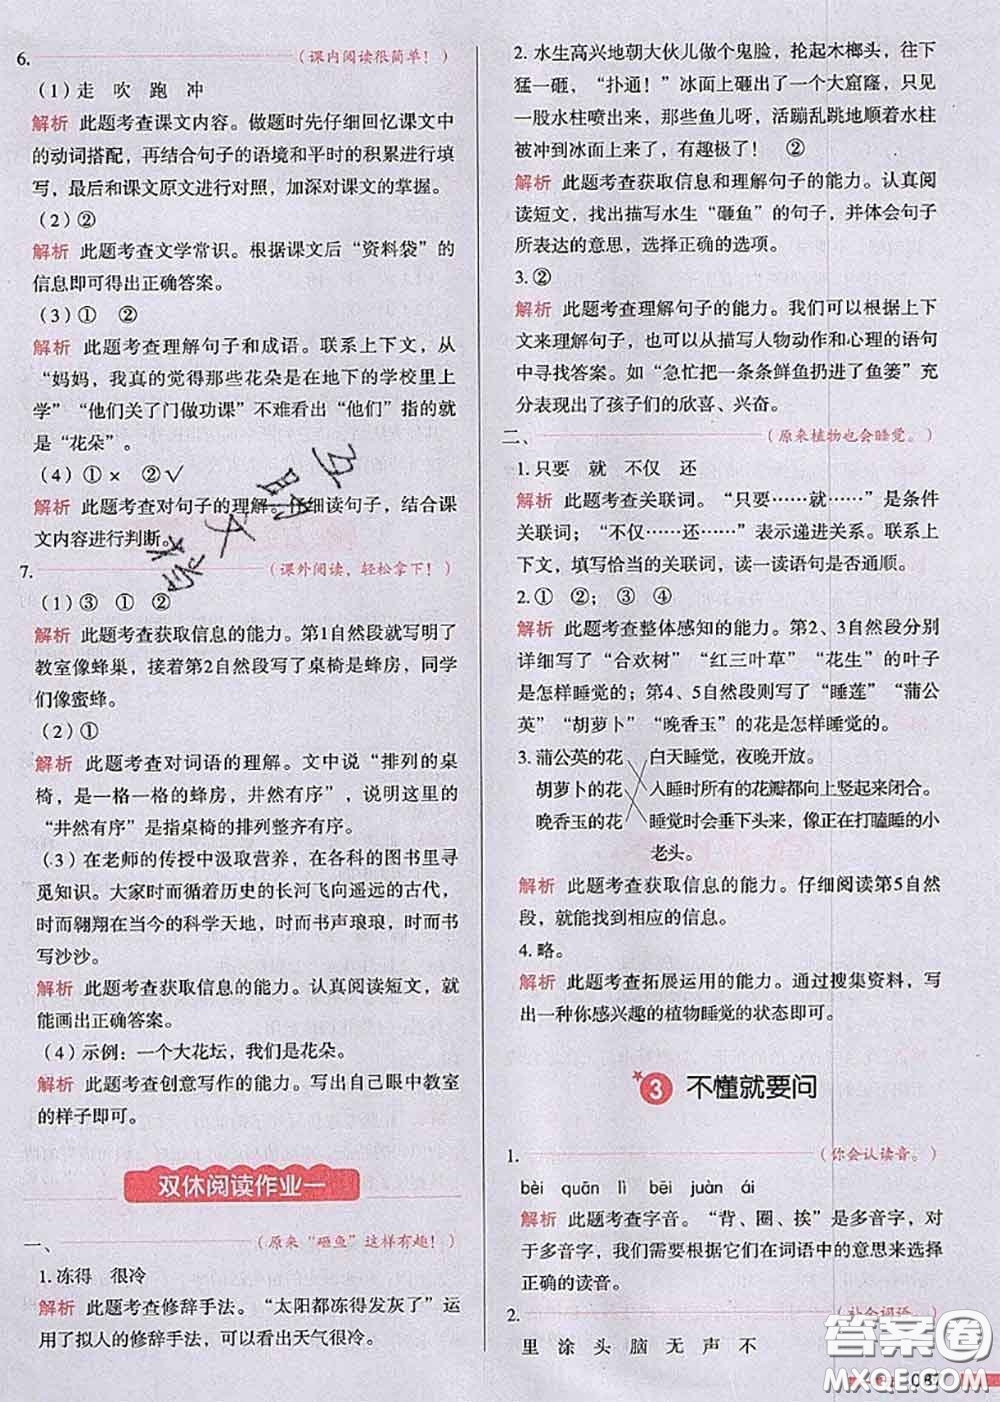 6.（课内阅读很简单！）
（1）走　吹　跑　冲
解析　此题考查课文内容。做题时先仔细回忆课文中
的动词搭配，再结合句子的语境和平时的积累进行填
写，最后和课文原文进行对照，加深对课文的掌握。
（2）②
解析　此题考查文学常识。根据课文后“资料袋”的
信息即可得出正确答案。
（3）①　②
解析　此题考查理解句子和成语。联系上下文，从
“妈妈，我真的觉得那些花朵是在地下的学校里上
学”“他们关了门做功课”不难看出“他们”指的就
是“花朵”。
（4）①×　②√
解析　此题考查对句子的理解。仔细读句子，结合课
文内容进行判断。
7.（课外阅读，轻松拿下！）
（1）③　①　②
解析　此题考查获取信息的能力。第1自然段就写明了
教室像蜂巢，接着第2自然段写了桌椅是蜂房，同学
们像蜜蜂。
（2）①
解析　此题考查对词语的理解。文中说“排列的桌
椅，是一格一格的蜂房，井然有序”，说明这里的
“井然有序”是指桌椅的排列整齐有序。
（3）在老师的传授中汲取营养，在各科的图书里寻
觅知识。大家时而循着历史的长河飞向遥远的古代，
时而翱翔在当今的科学天地，时而书声琅琅，时而书
写沙沙。
解析　此题考查获取信息的能力。认真阅读短文，就
能画出正确答案。
（4）示例：一个大花坛，我们是花朵。
解析　此题考查创意写作的能力。写出自己眼中教室
的样子即可。
双休阅读作业一
一、（原来“砸鱼”这样有趣！）
1.冻得　很冷
解析　此题考查修辞手法。“太阳都冻得发灰了”运
用了拟人的修辞手法，可以看出天气很冷。
2.水生高兴地朝大伙儿做个鬼脸，抡起木榔头，往下
猛一砸，“扑通！”冰面上砸出了一个大窟窿，只见
一股水柱喷出来，那些鱼儿呀，活蹦乱跳地随着水柱
被冲到冰面上来，有趣极了！　②
解析　此题考查获取信息和理解句子的能力。认真阅
读短文，找出描写水生“砸鱼”的句子，并理解句子
所表达的意思，选择正确的选项。
3.②
解析　此题考查理解句子的能力。我们可以根据上下
文来理解句子，可以从描写人物动作和心理的语句
中寻找答案。如“急忙把一条条鲜鱼扔进了鱼篓”充
分表现出了孩子们的欣喜、兴奋。
二、（原来植物也会睡觉。）
1.只要　就　不仅　还
解析　此题考查关联词。“只要……就……”是条件
关联词；“不仅……还……”表示递进关系。联系上
下文，填写恰当的关联词，读一读语句是否通顺。
2.①　②；　③　④
解析　此题考查整体感知的能力。第2、3自然段分别
详细写了“合欢树”“红三叶草”“花生”的叶子
是怎样睡觉的；第4、5自然段则写了“睡莲”“蒲公
英”“胡萝卜”“晚香玉”的花是怎样睡觉的。
3.蒲公英的花　白天睡觉，夜晚开放。
胡萝卜的花　入睡时所有的花瓣都向上竖起来闭合。
晚香玉的花　睡觉时会垂下头来，像正在打瞌睡的小
老头。
解析　此题考查获取信息的能力。仔细阅读第5自然
段，就能找到相应的信息。
4.略。
解析　此题考查拓展运用的能力。通过搜集资料，写
出一种你感兴趣的植物睡觉的状态即可。
3　不懂就要问
1.（你会认读音。）
bèi　quān　lì　bēi　juàn　ái
解析　此题考查字音。“背、圈、挨”是多音字，对
于多音字，我们需要根据它在词语中的意思来选择
正确的读音。
2.（补全词语。）
里　涂　头　脑　无　声　不
答案圈
MXQE.COM